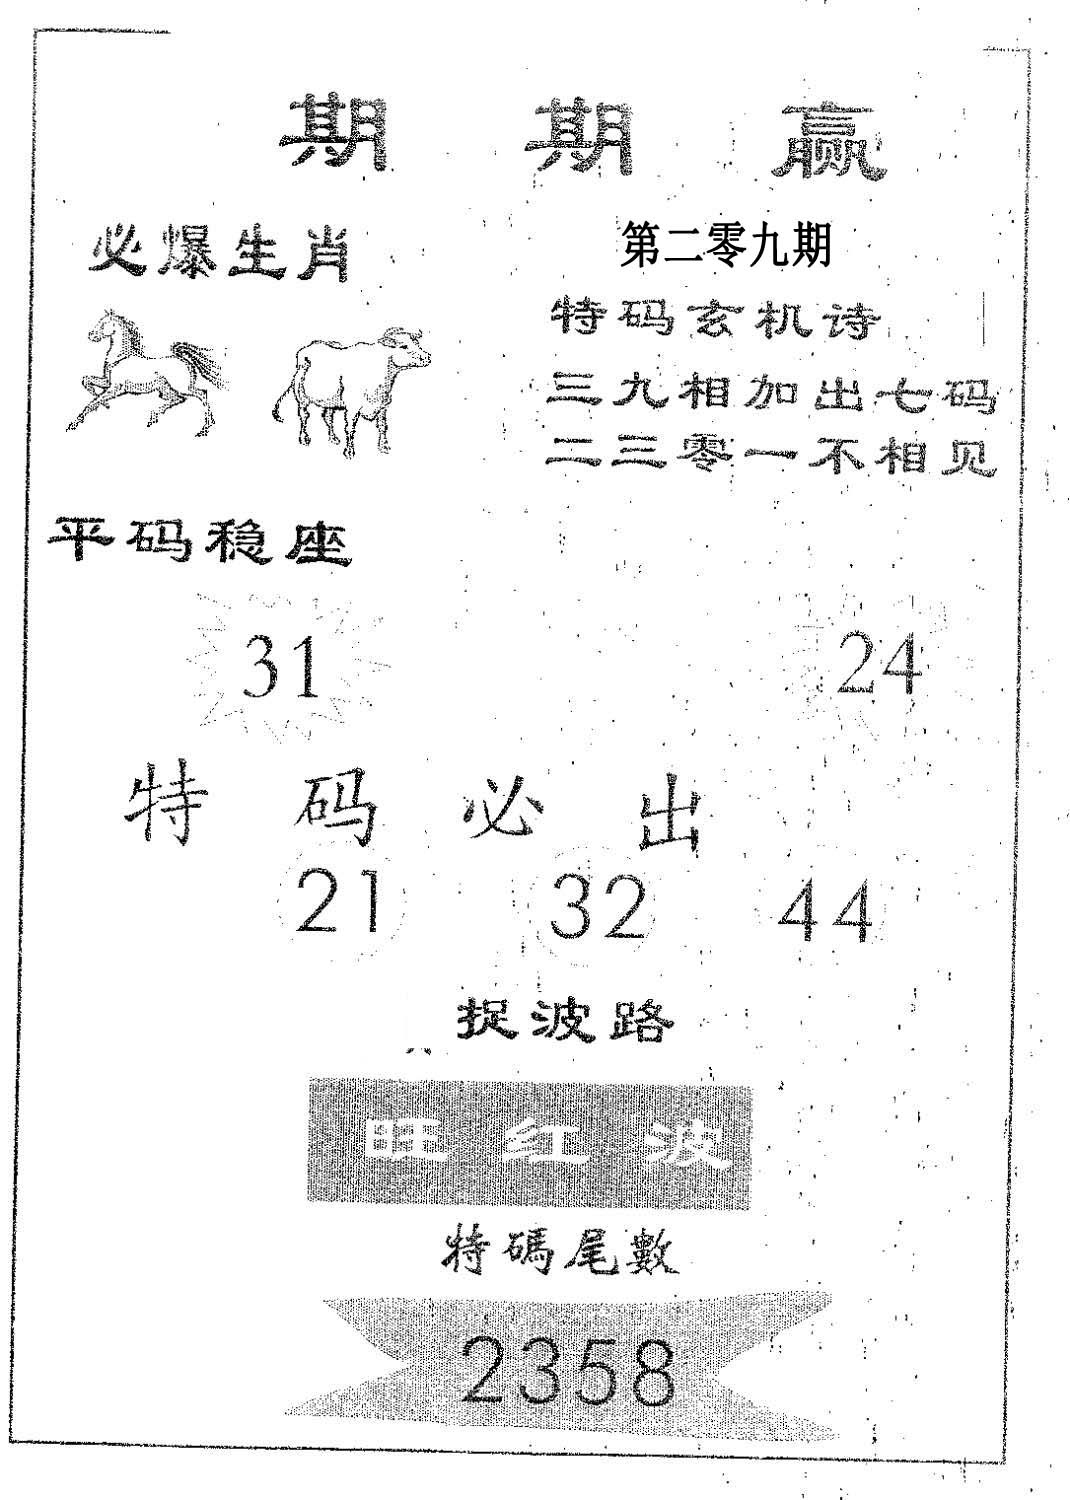 期期赢
必爆生肖
第二零九期
特码玄机诗
三九相加出七码
二三零一不相见
平码稳座
31
24
特码必出
21 32 44
捉波路
旺红波
特碼尾數
2358